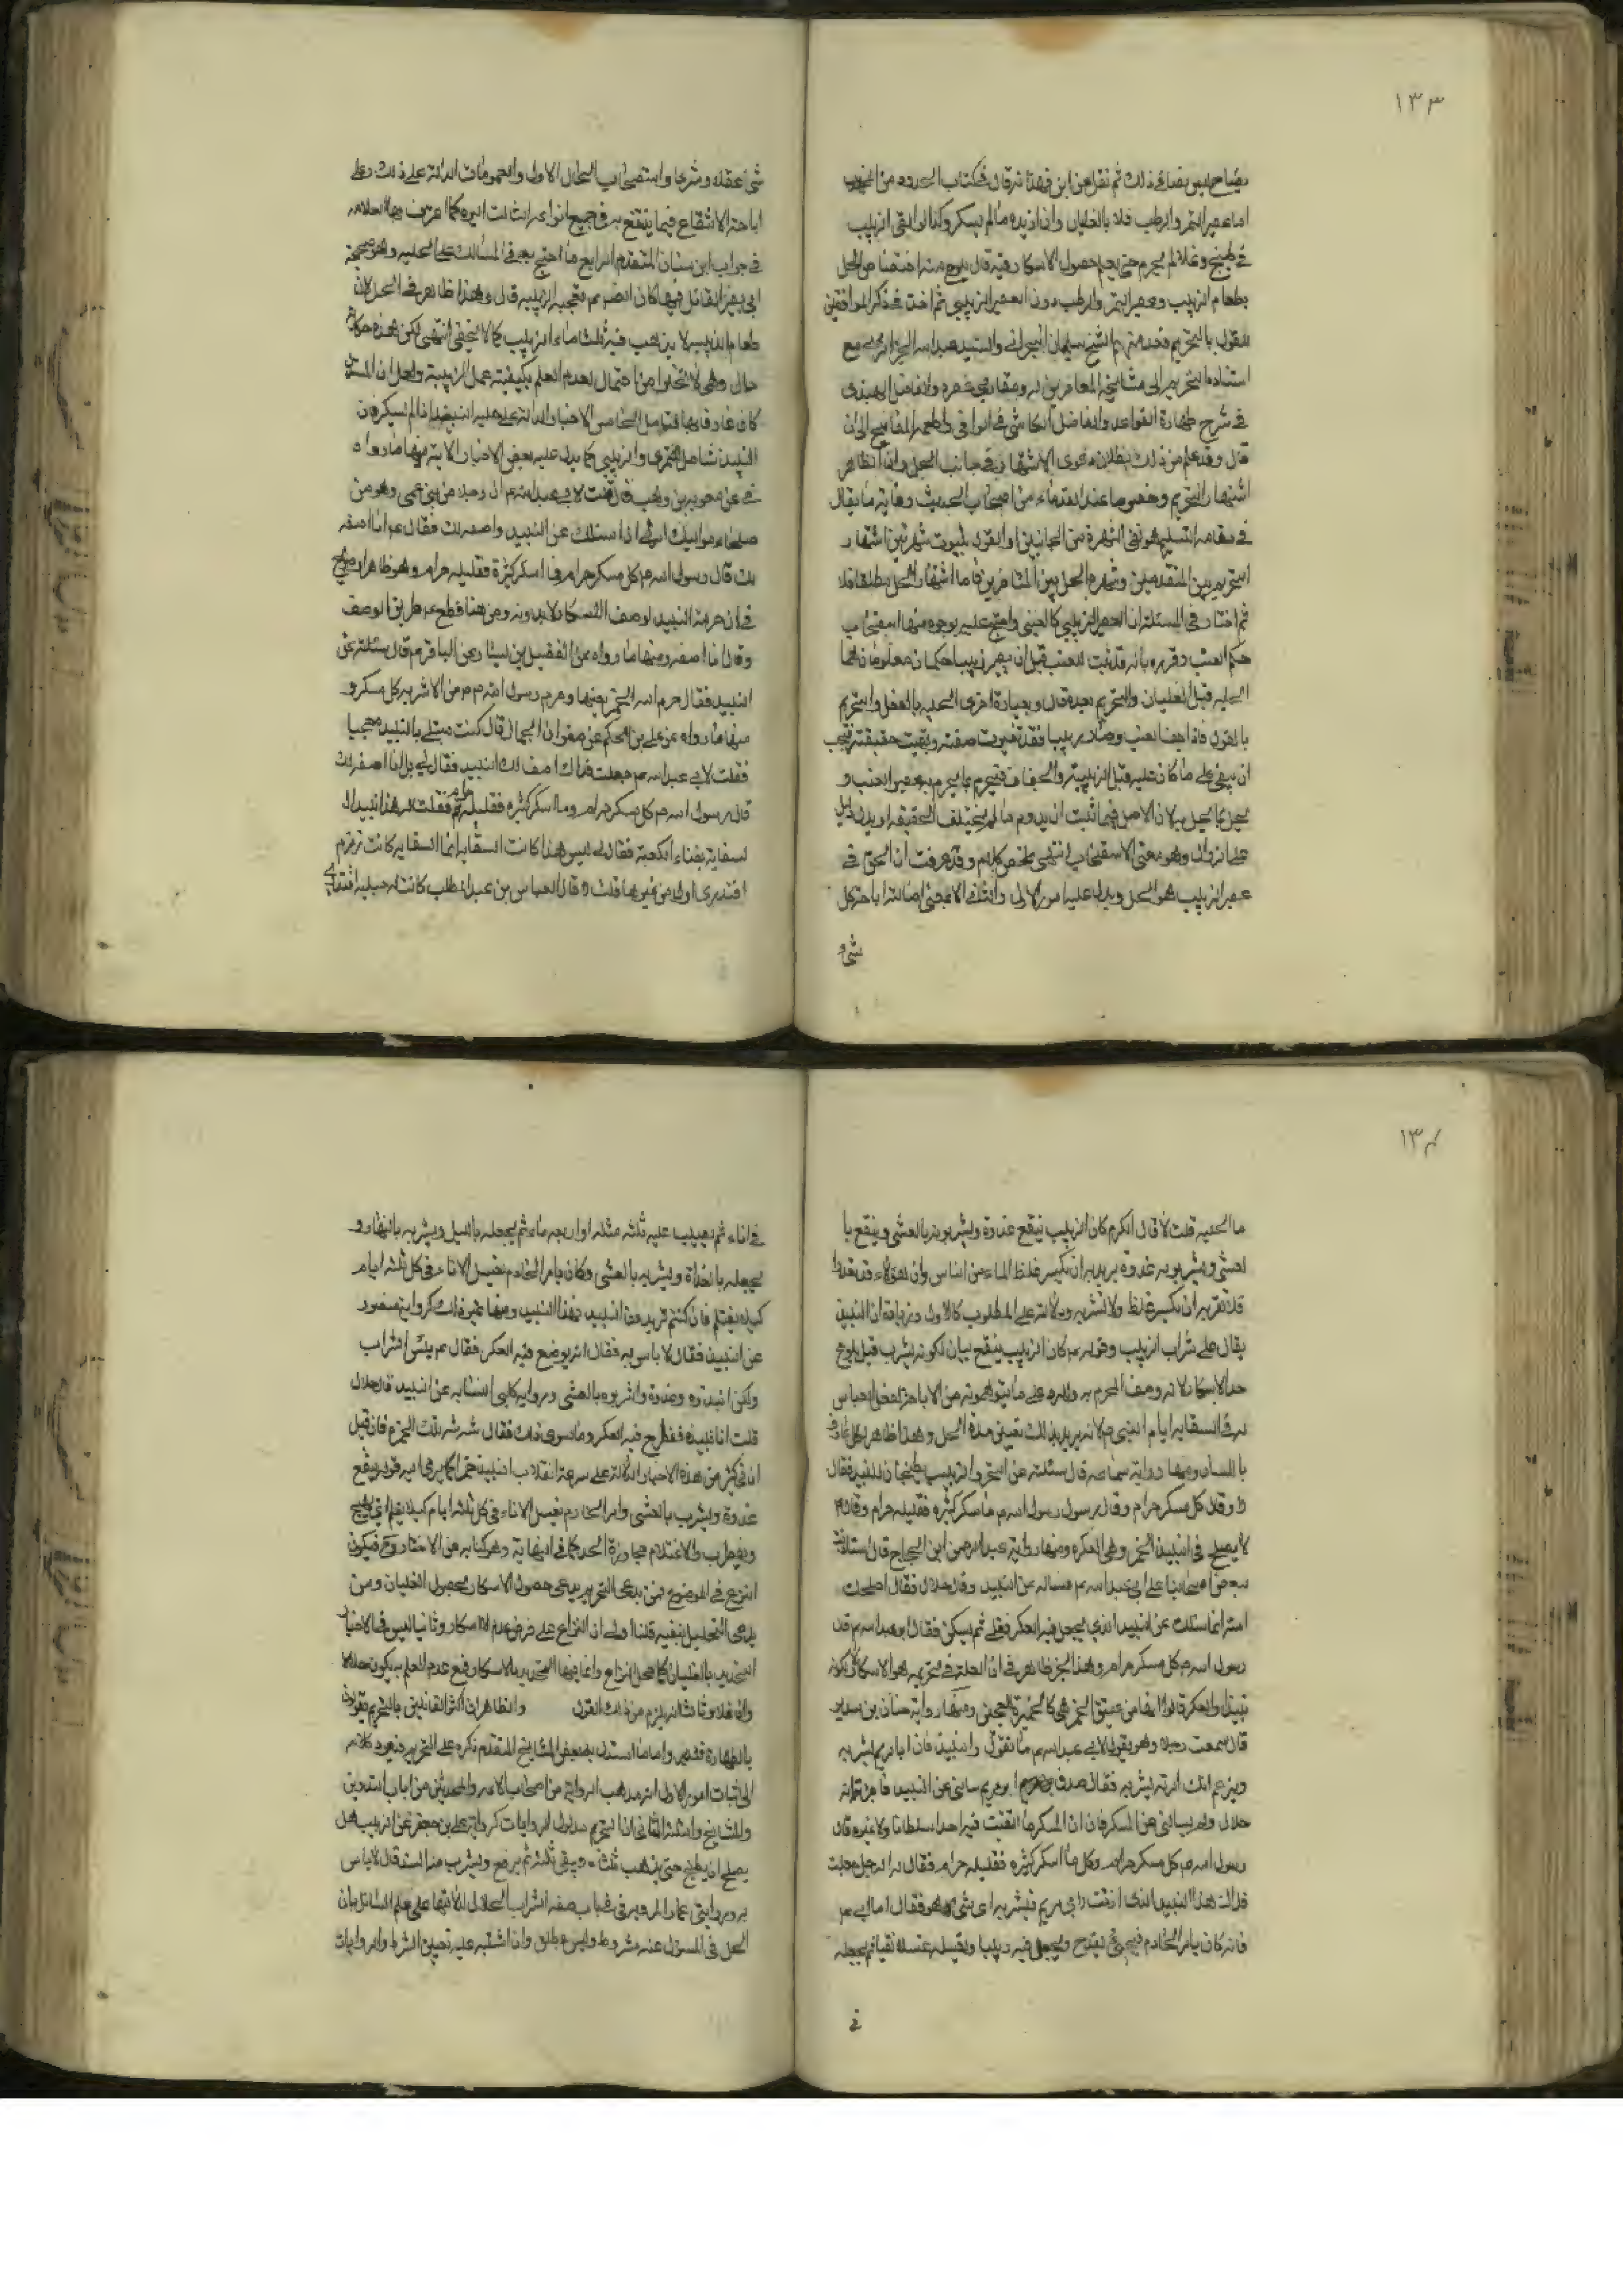 ١٣٣
بصاحبه بين بصافى ذلك ثم نقل عن ابن فهد انه قال فى كتاب الحدود من المهذب
اما عصير التمر والرطب فلا بالغليان وان ازيد ما لم يسكر وكذا لو القى الزبيب
فى طبيخ وغلا لم يحرم حتى يعلم حصول الاسكار وفيه قال يلوح منه اختصاص الحل
بطعام الزبيب وعصير التمر والرطب دون العصير الزبيبى ثم اخذ فى ذكر الموافقين
للقول بالتحريم فعد منهم الشيخ سليمان البحرانى والسيد عبد الله الجزائرى مع
استناده التحريم الى مشايخه المعاصرين له ومقاربى عصره والفاضل الهندى
فى شرح طهارة القواعد والفاضل الكاشى فى الوافى واطعمة المفاتيح الى ان
قال وقد علم من ذلك بطلان دعوى الاشتهار فى جانب الحل وان الظاهر
اشتهار التحريم وخصوصا عند القدماء من اصحاب الحديث وغاية ما يقال
فى مقام التسليم هو نفى الشهرة من الجانبين او القول بثبوت شهرتين اشتهار
التحريم بين المتقدمين وشهرة الحل بين المتاخرين فاما اشتهار الحل مطلقا فلا
ثم اختار فى المسئلة ان العصير الزبيبى كالعنبى واحتج عليه بوجوه منها استصحاب
حكم العنب وقرره بانه قد ثبت للعنب قبل ان يصير زبيبا حكمان معلومان هما
الحلية قبل الغليان والتحريم بعده قال وبعبارة اخرى الحلية بالفعل والتحريم
بالقوة فاذا جف العنب وصار زبيبا فقد تغيرت صفته وبقيت حقيقته فيجب
ان يبقى على ما كان عليه قبل الزبيبية والجفاف فيحرم بما يحرم به عصير العنب و
يحل بما يحل به لان الاصل فيما ثبت ان يدوم ما لم يختلف الحقيقة او يدل دليل
على الزوال وهو معنى الاستصحاب انتهى ملخص كلامه وقد عرفت ان الحق فى
عصير الزبيب هو الحل ويدل عليه امور الاول والثانى الاصل اصالة اباحة كل
شئ و
شئ عقلا وشرعا واستصحاب الحال الاول والعمومات الدالة على ذلك وعلى
اباحة الانتفاع فيما ينتفع به فى جميع انواعه الثالث السيرة كما اعترف بها العلامه
فى جواب ابن سنان المتقدم الرابع ما احتج به فى المسالك على الحلية وهو صحيحة
ابى بصير القائل فيها كان الصادق عم تعجبه الزبيبة قال وهذا ظاهر فى الحل لان
طعام الزبيب لا يذهب فيه ثلثا ماء الزبيب كما لا يخفى انتهى لكن هذه حكاية
حال وهى لا تخلوا من احتمال لعدم العلم بكيفية عمل الزبيبة ولعل ان المستدل
كان عارفا بها فتامل الخامس الاخبار الدالة على حلية النبيذ اذا لم يسكر فان
النبيذ شامل للتمرى والزبيبى كما يدل عليه بعض الاخبار الاتية منها ما رواه
فى عن معوية بن وهب قال قلت لابى عبد الله عم ان رجلا من بنى عمى وهو من
صلحاء مواليك امرنى ان اسئلك عن النبيذ واصفه لك فقال عم انا اصفه
لك قال رسول الله ص كل مسكر حرام وما اسكر كثيره فقليله حرام وهو ظاهر او صريح
فى ان حرمة النبيذ لوصف الاسكار لا بدونه ومن هنا قطع عم طريق الوصف
وقال انا اصفه ومنها ما رواه عن الفضيل بن يسار عن الباقر عم قال سئلته عن
النبيذ فقال حرم الله الخمر بعينها وحرم رسول الله ص من الاشربه كل مسكر و
منها ما رواه عن على بن الحكم عن صفوان الجمال قال كنت مبتلى بالنبيذ معجبا
فقلت لابى عبد الله عم جعلت فداك اصف لك النبيذ فقال لى بل انا اصفه لك
قال رسول الله ص كل مسكر حرام وما اسكر كثيره فقليله حرام فقلت له هذا نبيذ ال
لسقاية بفناء الكعبة فقال لى ليس هكذا كانت السقاية انما السقاية كانت زمزم
افتدرى اول من غيرها قلت لا قال العباس بن عبد المطلب كانت له حبلة افتدرى
١٣٤
ما الحبلة قلت لا قال الكرم كان الزبيب ينقع غدوة ويشربونه بالعشى وينقع با
لعشى ويشربونه غدوة يريد به ان يكسر غلظ الماء من الناس وان هؤلاء قد تعدوا
فلا تقربه ان يكسر غلظ ولا تشربه ودلالته على المطلوب كالاول وزيادة ان النبيذ
يقال على شراب الزبيب وقوله عم كان الزبيب ينقع بيان لكونه يشرب قبل بلوغ
حد الاسكار لانه وصف المحرم به والرد على ما يتوهمونه من الاباحة لفعل العباس
له فى السقاية ايام النبى ص لانه يريد بذلك تعيين مدة الحل وهذا ظاهر لكل عارف
باللسان ومنها رواية سماعه قال سئلته عن التمر والزبيب يطبخان للنبيذ فقال
لا وقال كل مسكر حرام وقال رسول الله ص ما اسكر كثيره فقليله حرام وقال
لا يصلح فى النبيذ الخمر وهى العكرة ومنها رواية عبد الرحمن ابن الحجاج قال استاذنت
لبعض اصحابنا على ابى عبد الله عم فساله عن النبيذ وقال حلال فقال اصلحك
الله انما سئلتك عن النبيذ الذى يجعل فيه العكر فيغلى ثم يسكن فقال ابو عبد الله عم قال
رسول الله ص كل مسكر حرام وهذا الخبر ظاهر فى ان العلة فى تحريمه هو الاسكار لا كونه
نبيذا والعكر قالوا انها من عتيق الخمر هى كالخميرة للعجين ومنها رواية حنان بن سدير
قال سمعت رجلا وهو يقول لابى عبد الله عم ما تقول فى النبيذ فان ابا مريم يشربه
ويزعم انك امرته بشربه فقال صدق ابو مريم سالنى عن النبيذ فاخبرته انه
حلال ولم يسالنى عن المسكر فان ان المسكر ما اتقيت فيه احدا سلطانا ولا غيره قال
رسول الله ص كل مسكر حرام وكل ما اسكر كثيره فقليله حرام فقال له الرجل جعلت
فداك هذا النبيذ الذى اذنت لابى مريم فيشربه اى شئ هو فقال اما ابى عم
فانه كان يامر الخادم فيجئ بقدح ويجعل فيه زبيبا ويغسله غسلا نقيا ثم يجعله
فى
فى اناء ثم يصب عليه ثلثه مثله او اربعه ماء ثم يجعله بالليل ويشربه بالنهار و
يجعله بالغداة ويشربه بالعشى وكان يامر الخادم بغسل الاناء فى كل ثلثه ايام
كيلا يغتلم فان كنتم تريدون النبيذ فهذا النبيذ ومنها غير ذلك كرواية منصور
عن النبيذ فقال لا باس به فقال انه يوضع فيه العكر فقال عم بئس الشراب
ولكن انبذوه غدوة واشربوه بالعشى ورواية كلبى النسابه عن النبيذ قال حلال
قلت انا ننبذه فنطرح فيه العكر وما سوى ذلك فقال شه شه تلك الخمرة فان قيل
ان فى كثير من هذه الاخبار الدلالة على سرعة انقلاب النبيذ خمرا كما يرمى اليه قوله ينقع
غدوة ويشرب بالعشى وامر الخادم بغسل الاناء فى كل ثلثه ايام كيلا يغتلم اى يهيج
ويضطرب والاغتلام مجاوزة الحد كما فى النهاية وهو كناية عن الاسكار وح فيكون
النزاع فى الموضوع فمن يدعى التحريم يدعى حصول الاسكار بحصول الغليان ومن
يدعى التحليل ينفيه قلنا اولا ان النزاع على فرض عدم الاسكار وثانيا ليس فى الاخبار
التحديد بالغليان كما هو محل النزاع وانما فيها التحديد بالاسكار فمع عدم العلم به يكون حلالا
وان غلا وثالثا انه يلزم من ذلك القول والظاهر ان اكثر القائلين بالتحريم يقولون
بالطهارة فتدبر واما ما استدل به بعض المشايخ المتقدم ذكره على التحريم فيعود كلامه
الى اثبات امور الاول انه مذهب الرواة من اصحاب الائمة والمحدثين من ارباب التدوين
والمشايخ واسند الثانى ان التحريم مدلول الروايات كرواية على بن جعفر عن الزبيب هل
يصلح ان يطبخ حتى يذهب ثلثاه ويبقى ثلثه ثم يرفع ويشرب منه السنة قال لا باس
به وروايتى عمار المروية فى باب صفة الشراب الحلال لدلالتها على علم السائل بان
الحل فى المسؤل عنه مشروط وليس بمطلق وان اشتبه عليه تعيين الشرط والروايات